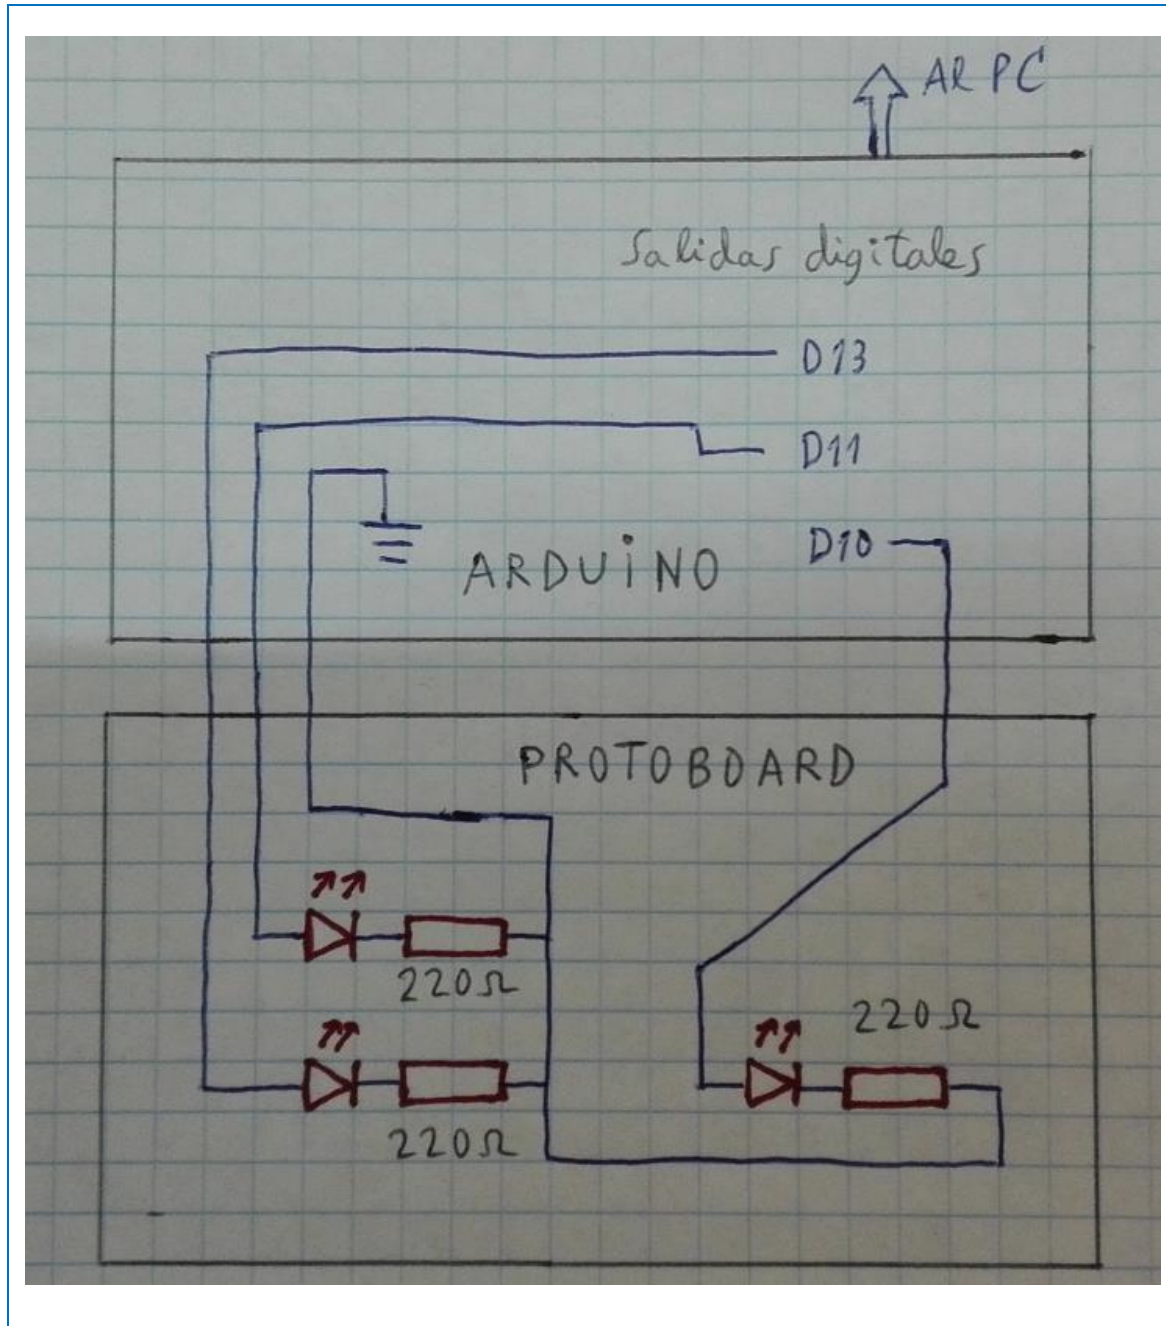 Al PC
Salidas digitales
D13
D11
D10
ARDUiNO
PROTOBOARD
220Ω
220Ω
220Ω